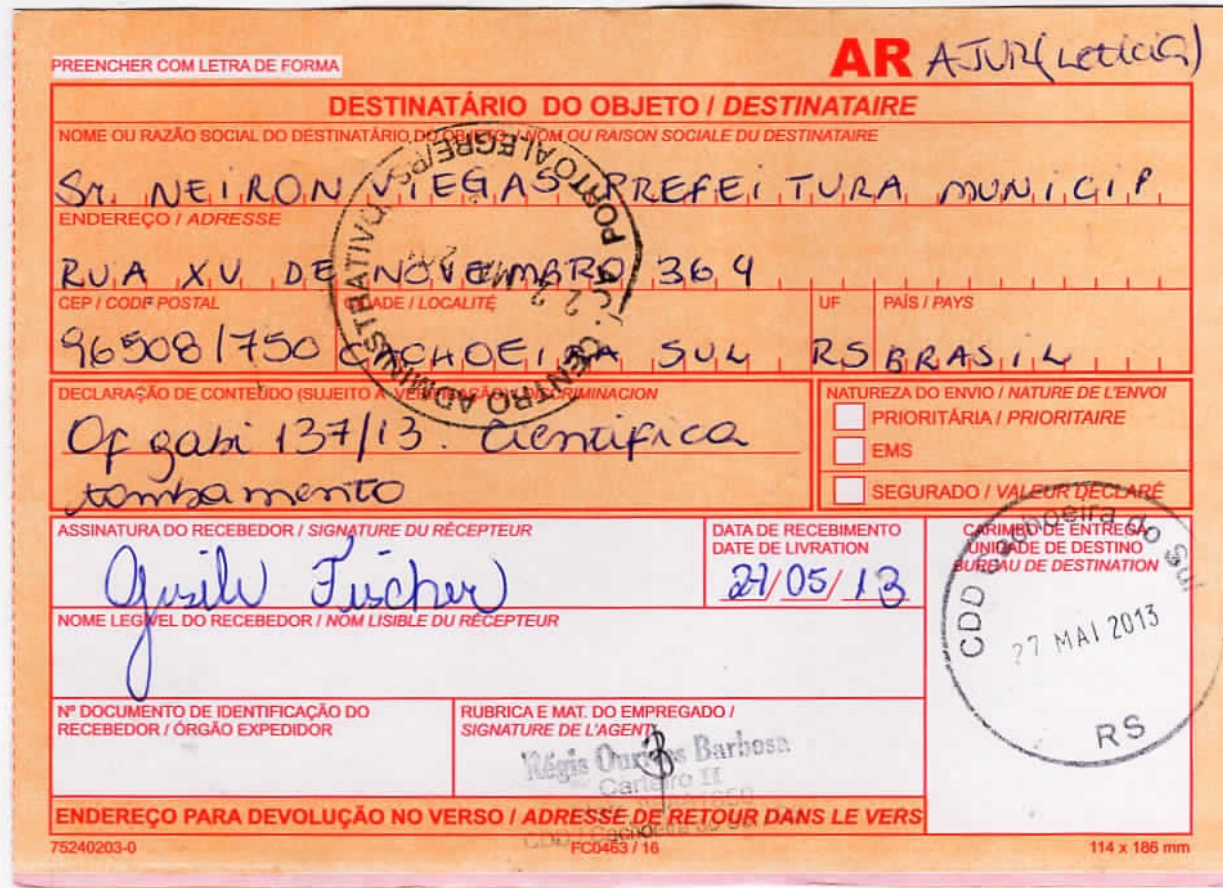 PREENCHER COM LETRA DE FORMA
AR AJUR (Letícia)
DESTINATÁRIO DO OBJETO / DESTINATAIRE
NOME OU RAZÃO SOCIAL DO DESTINATÁRIO DO OBJETO / NOM OU RAISON SOCIALE DU DESTINATAIRE
Sr. NEIRON VIEGAS PREFEITURA MUNICIP
ENDEREÇO / ADRESSE
RUA XV DE NOVEMBRO 364
CEP / CODE POSTAL CIDADE / LOCALITÉ UF PAÍS / PAYS
96508/750 CACHOEIRA SUL RS BRASIL
AC. CENTRO ADMINISTRATIVO PORTO ALEGRE/RS
DECLARAÇÃO DE CONTEÚDO (SUJEITO À VERIFICAÇÃO) / DISCRIMINACION
Of gabi 137/13. Cientifica
tombamento
NATUREZA DO ENVIO / NATURE DE L'ENVOI
PRIORITÁRIA / PRIORITAIRE
EMS
SEGURADO / VALEUR DÉCLARÉ
ASSINATURA DO RECEBEDOR / SIGNATURE DU RÉCEPTEUR
Fischer
DATA DE RECEBIMENTO
DATE DE LIVRATION
27/05/13
CARIMBO DE ENTREGA
UNIDADE DE DESTINO
BUREAU DE DESTINATION
CDD Cachoeira do Sul
27 MAI 2013
RS
NOME LEGÍVEL DO RECEBEDOR / NOM LISIBLE DU RÉCEPTEUR
Nº DOCUMENTO DE IDENTIFICAÇÃO DO
RECEBEDOR / ÓRGÃO EXPEDIDOR
RUBRICA E MAT. DO EMPREGADO /
SIGNATURE DE L'AGENT
Régis Barbosa
Carteiro II
CDD / Cachoeira do Sul
ENDEREÇO PARA DEVOLUÇÃO NO VERSO / ADRESSE DE RETOUR DANS LE VERS
75240203-0 FC0463 / 16 114 x 186 mm